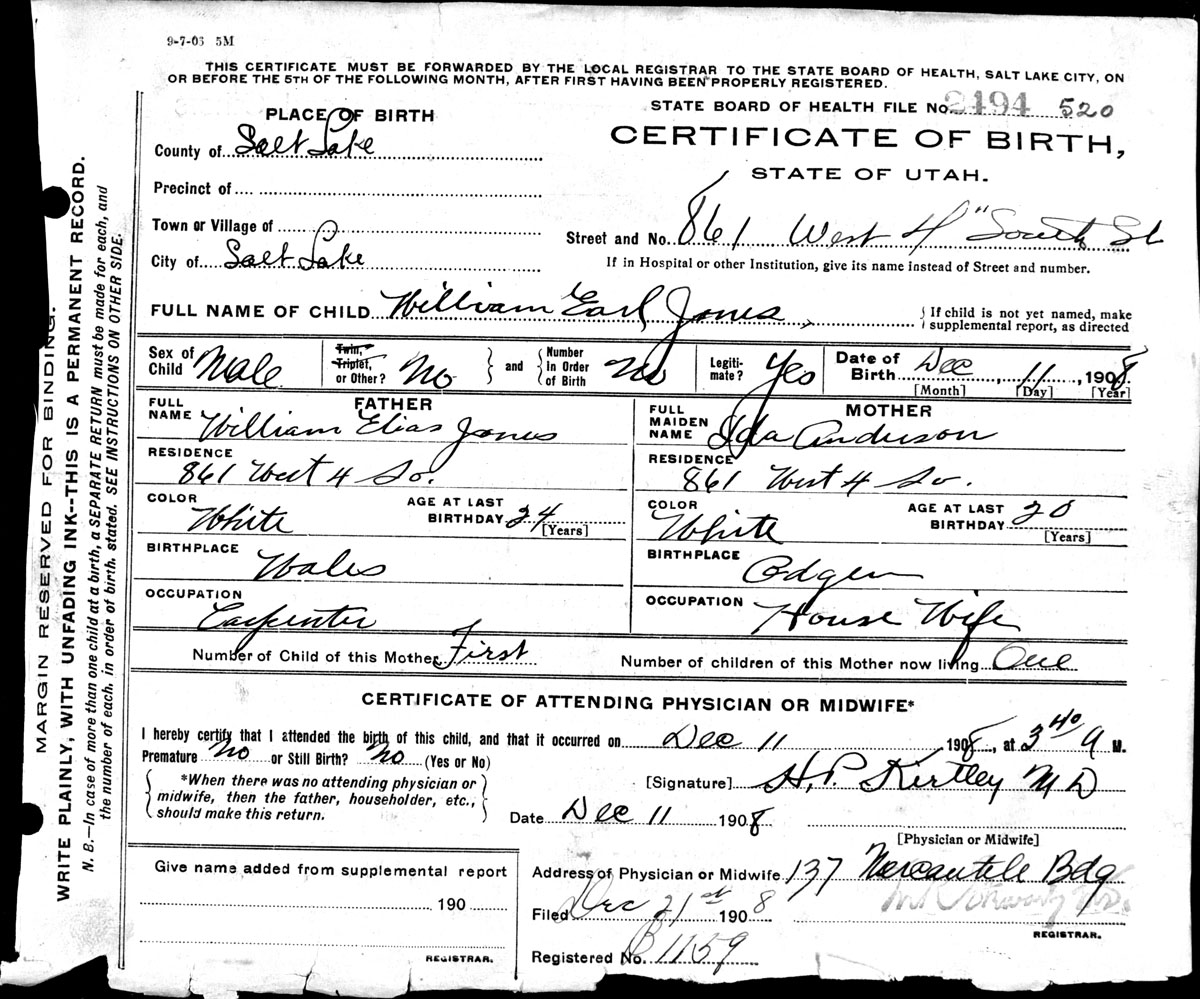 9-7-06 5M
THIS CERTIFICATE MUST BE FORWARDED BY THE LOCAL REGISTRAR TO THE STATE BOARD OF HEALTH, SALT LAKE CITY, ON
OR BEFORE THE 5TH OF THE FOLLOWING MONTH, AFTER FIRST HAVING BEEN PROPERLY REGISTERED.
STATE BOARD OF HEALTH FILE No. 2494 520
PLACE OF BIRTH
CERTIFICATE OF BIRTH,
STATE OF UTAH.
County of Salt Lake
Precinct of
Town or Village of
City of Salt Lake
Street and No. 861 West 4" South St
If in Hospital or other Institution, give its name instead of Street and number.
FULL NAME OF CHILD William Earl Jones, { If child is not yet named, make
supplemental report, as directed
Sex of Child Male
Twin, Triplet, or Other? No } and { Number In Order of Birth No
Legiti-mate? Yes
Date of Birth Dec, 11, 1908.
[Month] [Day] [Year]
FATHER
FULL NAME William Elias Jones
RESIDENCE
861 West 4 So.
COLOR White AGE AT LAST BIRTHDAY 24 [Years]
BIRTHPLACE Wales
OCCUPATION
Carpenter
MOTHER
FULL MAIDEN NAME Ida Anderson
RESIDENCE
861 West 4 So.
COLOR White AGE AT LAST BIRTHDAY 20 [Years]
BIRTHPLACE Ogden
OCCUPATION House Wife
Number of Child of this Mother First Number of children of this Mother now living One
CERTIFICATE OF ATTENDING PHYSICIAN OR MIDWIFE*
I hereby certify that I attended the birth of this child, and that it occurred on Dec 11, 1908, at 3 40/ A M.
Premature No or Still Birth? No (Yes or No)
{ *When there was no attending physician or
midwife, then the father, householder, etc.,
should make this return. }
[Signature] H. P. Kirtley M D
Date Dec 11 1908
[Physician or Midwife]
Address of Physician or Midwife 137 Mercantile Bdg
Filed Dec 21st 1908
REGISTRAR.
Registered No. B 1159
Give name added from supplemental report
190
REGISTRAR.
MARGIN RESERVED FOR BINDING.
WRITE PLAINLY, WITH UNFADING INK--THIS IS A PERMANENT RECORD.
N. B.—In case of more than one child at a birth, a SEPARATE RETURN must be made for each, and
the number of each, in order of birth, stated. SEE INSTRUCTIONS ON OTHER SIDE.